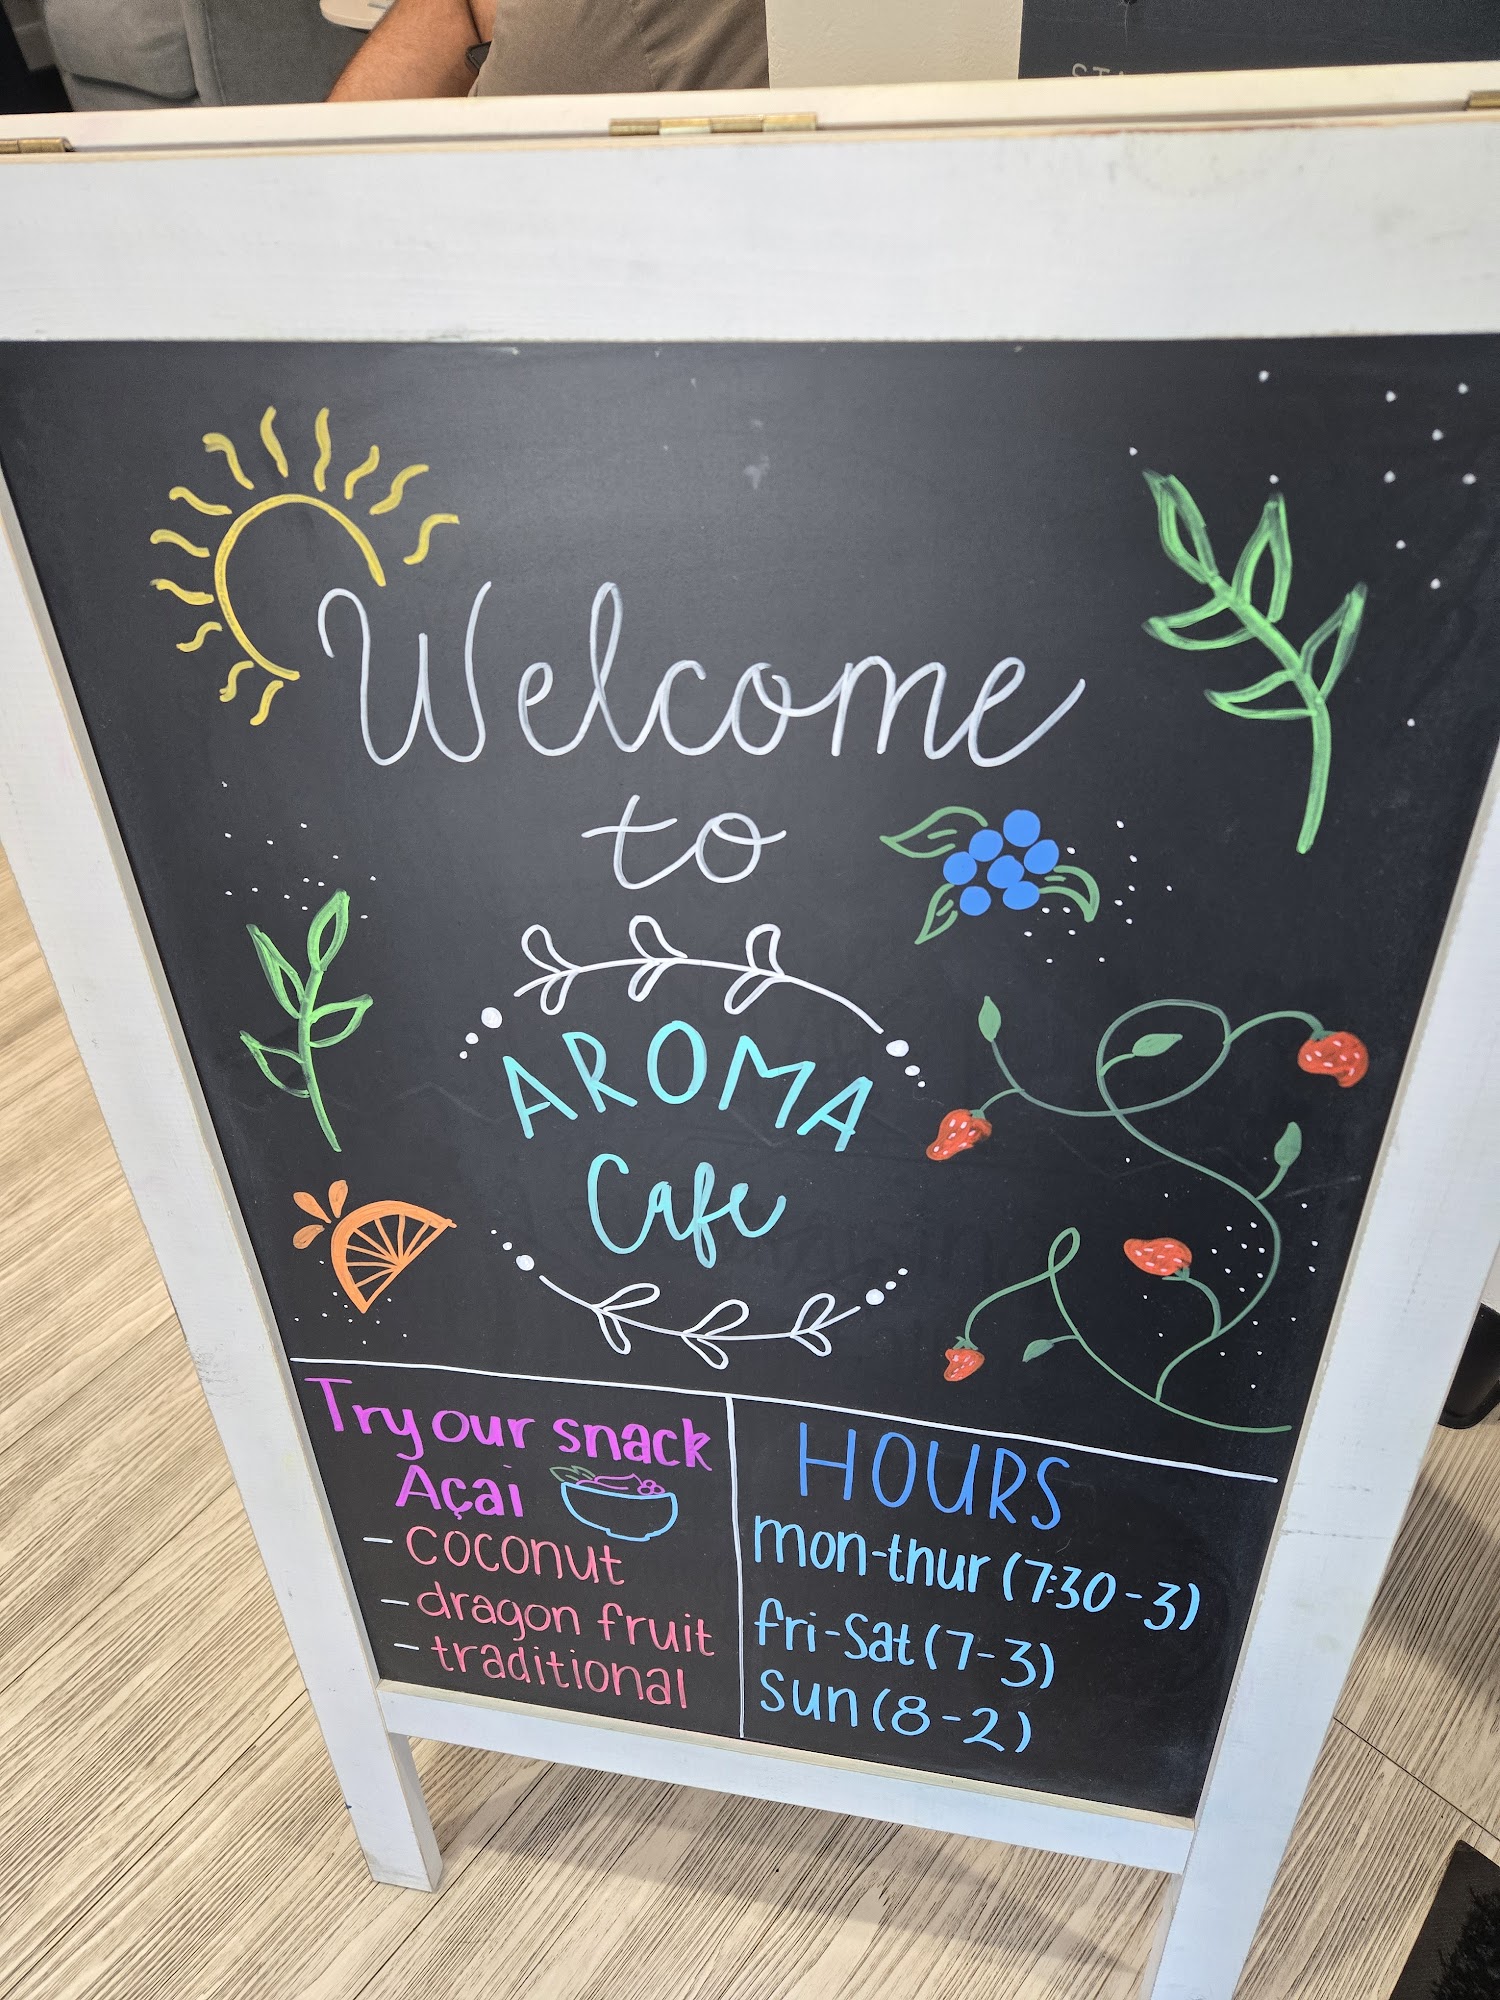 Welcome
to
AROMA
Cafe
Try our snack
Açai
- coconut
- dragon fruit
- traditional
HOURS
mon-thur (7:30-3)
fri-Sat (7-3)
sun (8-2)